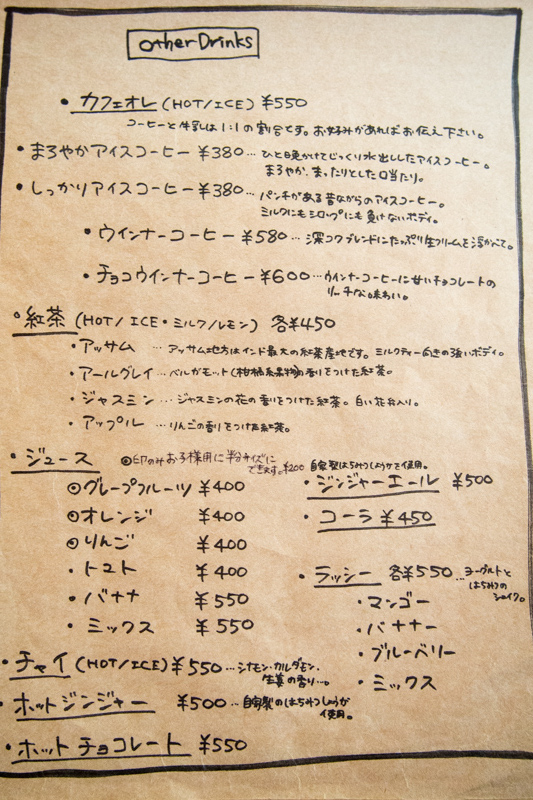 otherDrinks
・カフェオレ (HOT/ICE) ¥550
コーヒーと牛乳は1:1の割合です。お好みがあればお伝え下さい。
・まろやかアイスコーヒー ¥380…ひと晩かけてじっくり水出ししたアイスコーヒー。
まろやか、まったりとした口当たり。
・しっかりアイスコーヒー ¥380…パンチがある昔ながらのアイスコーヒー。
ミルクにもシロップにも負けないボディ。
・ウインナーコーヒー ¥580…深コクブレンドにたっぷり生クリームを浮かべて。
・チョコウインナーコーヒー ¥600…ウインナーコーヒーに甘いチョコレートの
リッチな味わい。
・紅茶 (HOT/ICE・ミルク/レモン) 各¥450
・アッサム …アッサム地方はインド最大の紅茶産地です。ミルクティー向きの強いボディ。
・アールグレイ …ベルガモット(柑橘系果物)の香りをつけた紅茶。
・ジャスミン …ジャスミンの花の香りをつけた紅茶。白い花弁入り。
・アップル …りんごの香りをつけた紅茶。
・ジュース ◎印のみお子様用に半分サイズに
できます。¥200
◎グレープフルーツ ¥400
◎オレンジ ¥400
◎りんご ¥400
・トマト ¥400
・バナナ ¥550
・ミックス ¥550
自家製はちみつしょうがを使用。
・ジンジャーエール ¥500
・コーラ ¥450
・ラッシー 各¥550…ヨーグルトと
はちみつの
シェイク。
・マンゴー
・バナナー
・ブルーベリー
・ミックス
・チャイ (HOT/ICE) ¥550…シナモン・カルダモン・
生姜の香り…。
・ホットジンジャー ¥500…自家製のはちみつしょうが
使用。
・ホットチョコレート ¥550